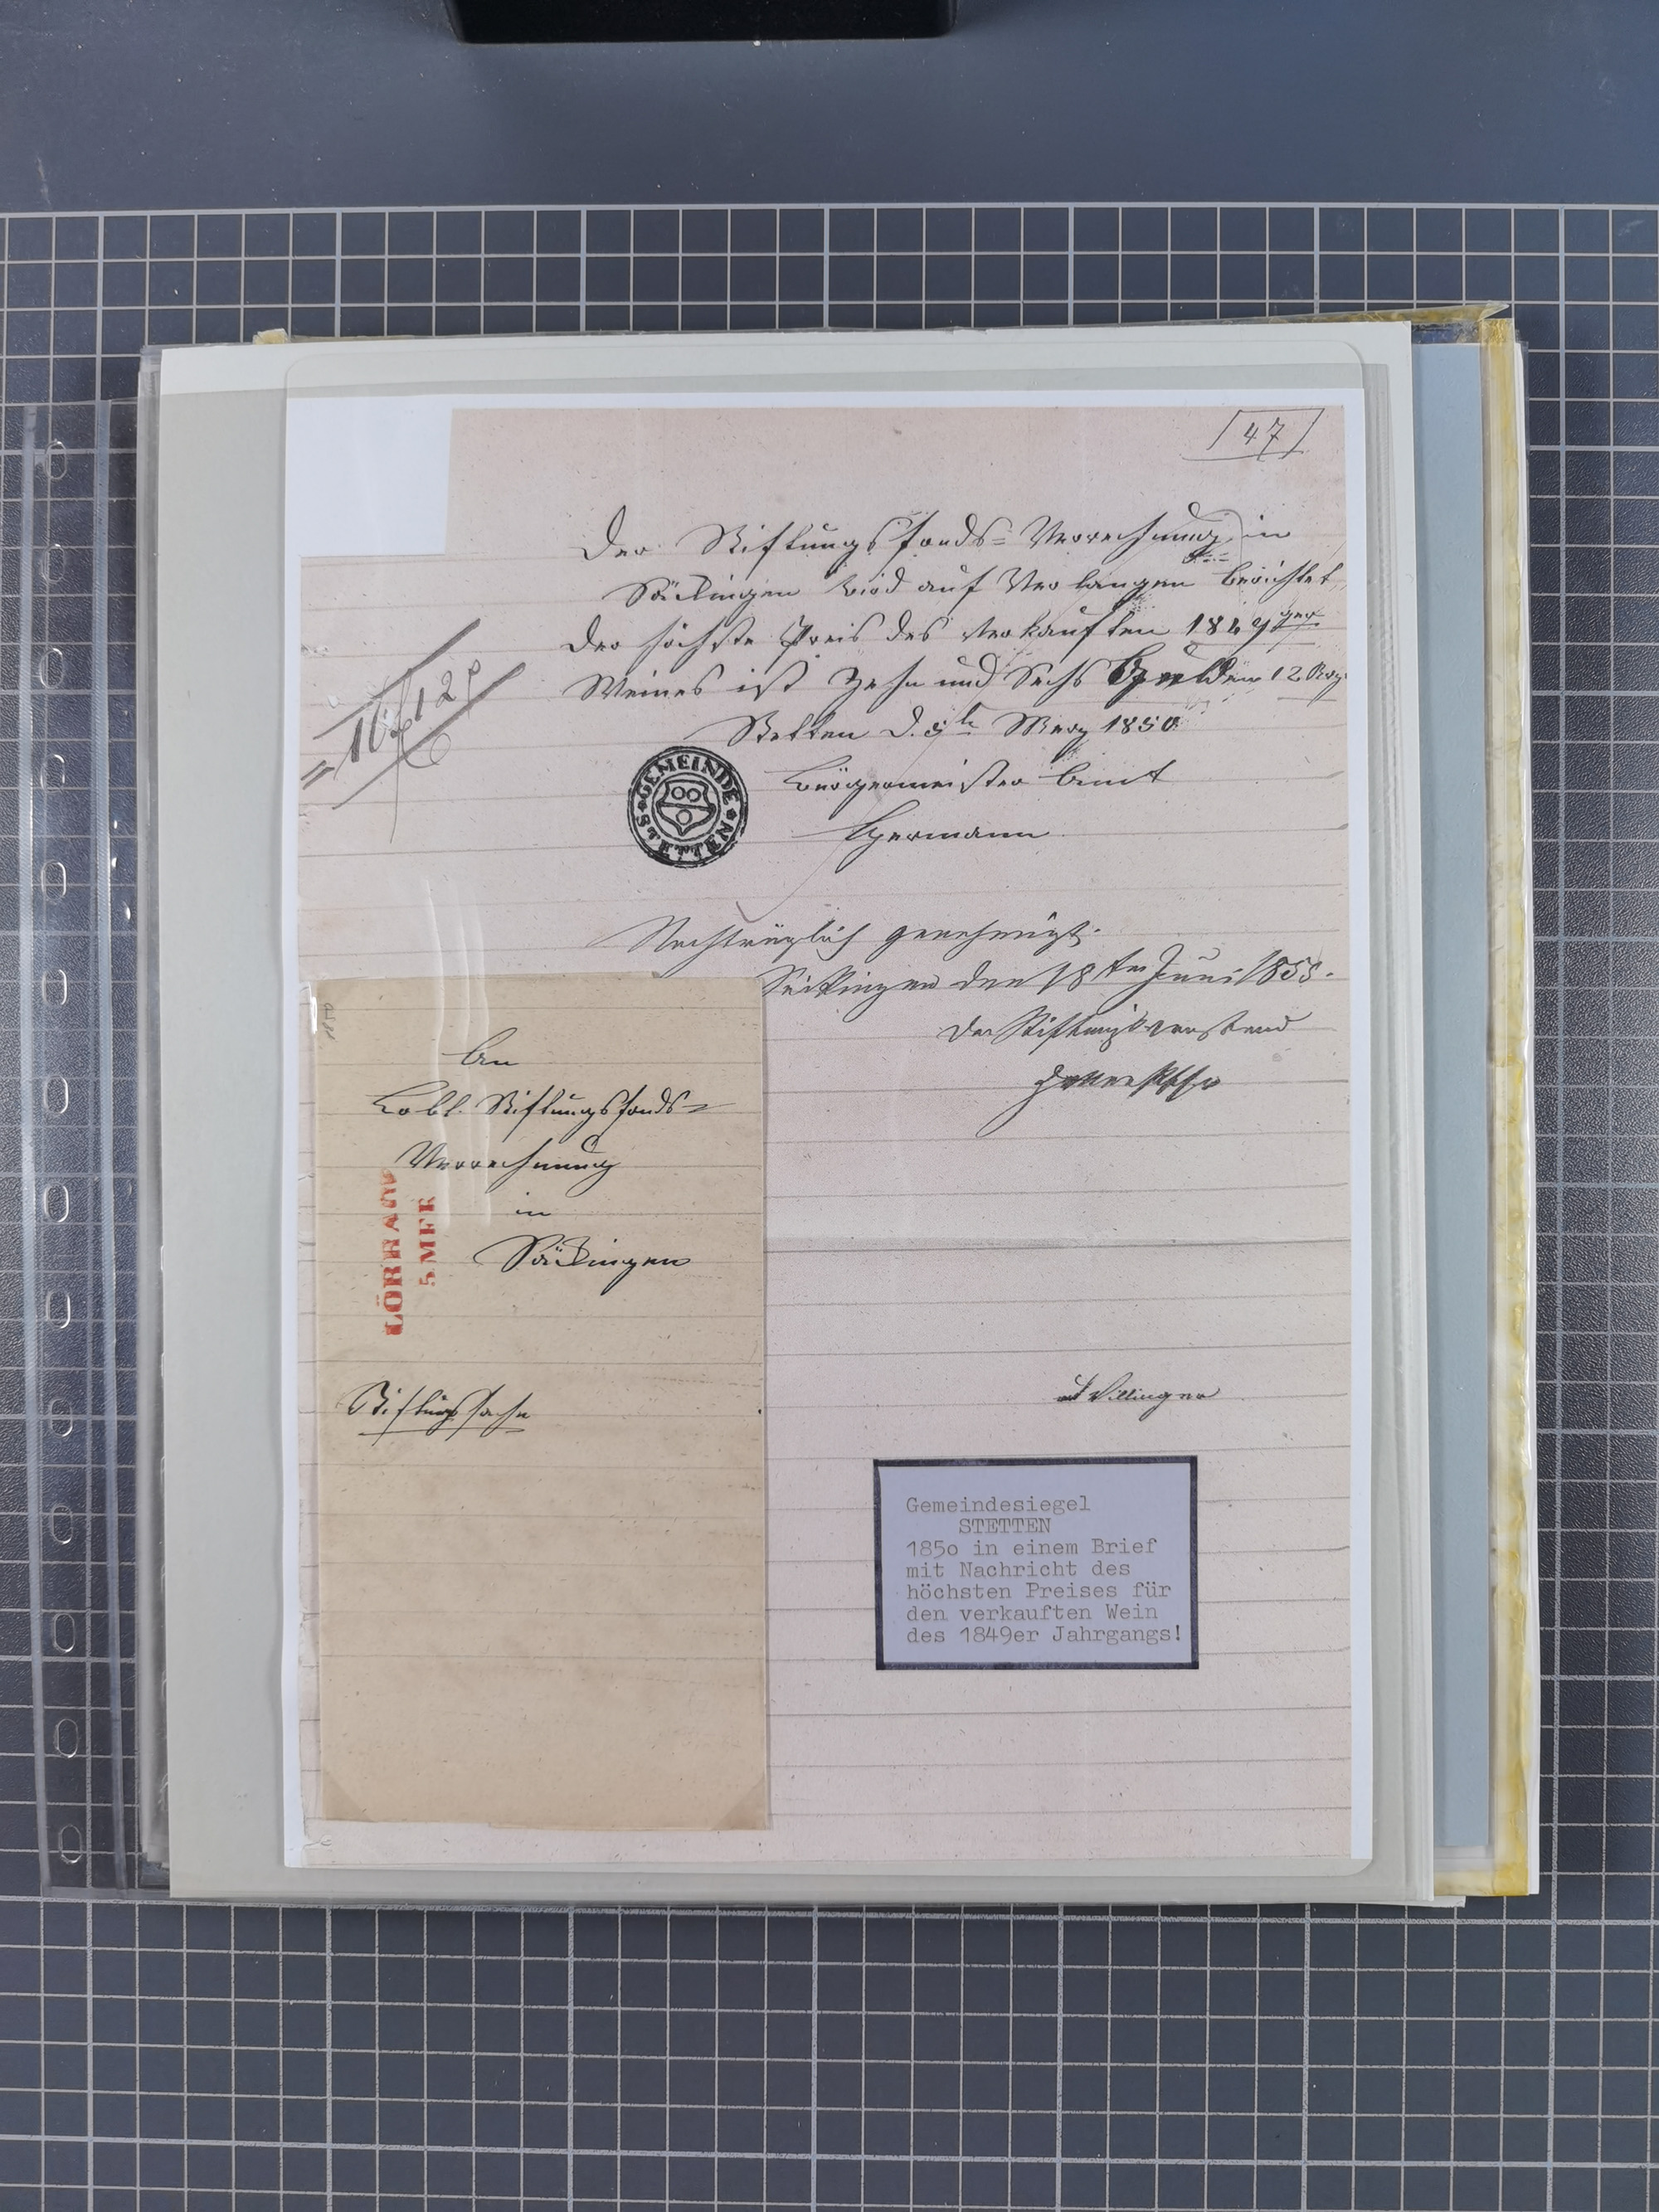 47
Der Stiftungsfonds=Verrechnung in
Säckingen wird auf Verlangen berichtet
der höchste Preis des verkauften 1849ger
Weines ist Zehn und Sechs Gulden 12 Krz.
Stetten d. 5t Merz 1850
Bürgermeister Amt
Germann
GEMEINDE STETTEN
16 f 12 x
Nachträglich genehmigt.
Säckingen den 18ten Juni 1855.
Der Stiftungsvorstand
An
Lobl. Stiftungsfonds=
Verrechnung
in
Säckingen
LÖRRACH
5 MER
Stiftungssache
Villinger
Gemeindesiegel
STETTEN
185o in einem Brief
mit Nachricht des
höchsten Preises für
den verkauften Wein
des 1849er Jahrgangs!